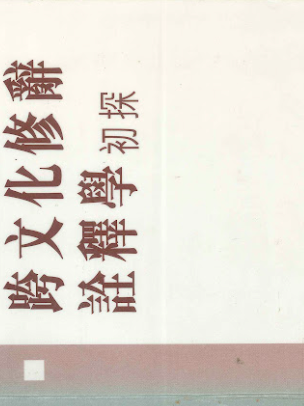 跨文化修辭
詮釋學初探